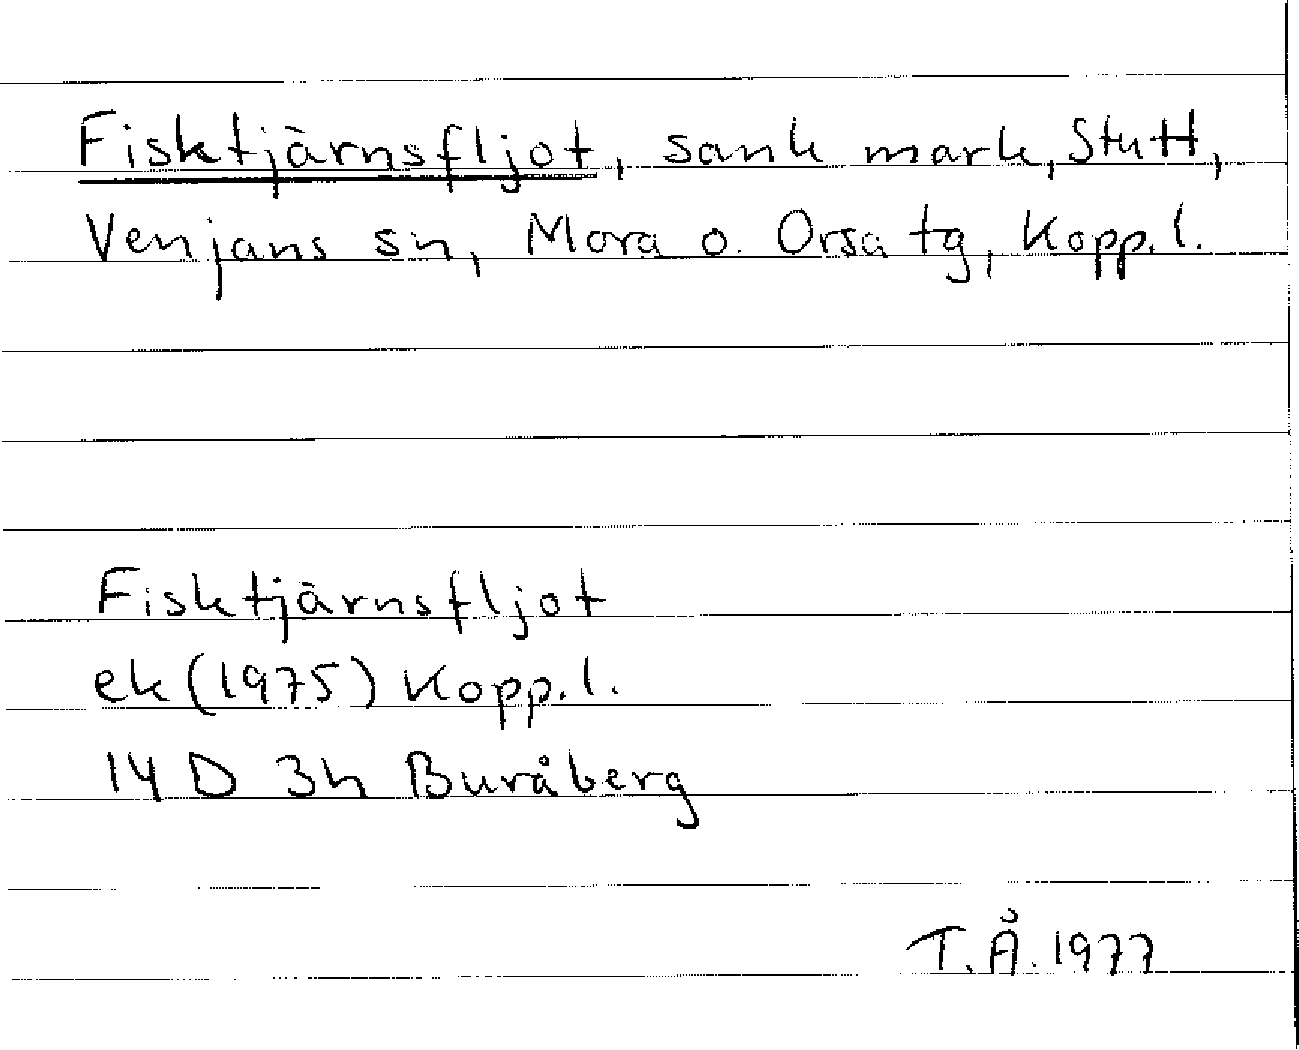 Fisktjärnsfljot, sank mark, Stutt,
Venjans sn, Mora o. Orsa tg, Kopp. l.
Fisktjärnsfljot
ek (1975) Kopp. l.
14 D 3h Buråberg
T.Å. 1977